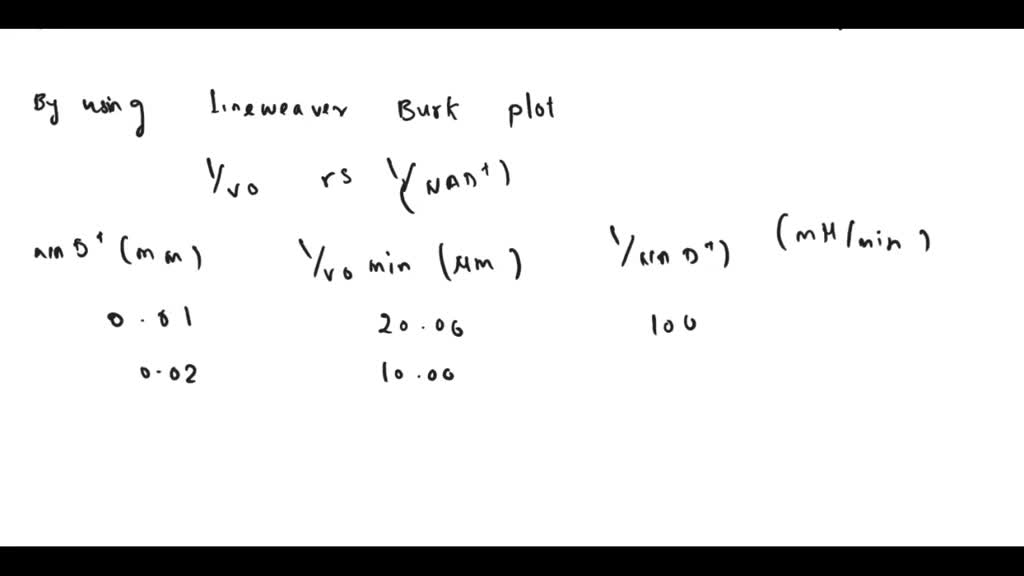 By using Lineweaver Burk plot
1/v0 vs 1/(NAD+)
NAD+ (mM) 1/v0 min (μM) 1/NAD+) (mM/min)
0.01 20.00 100
0.02 10.00